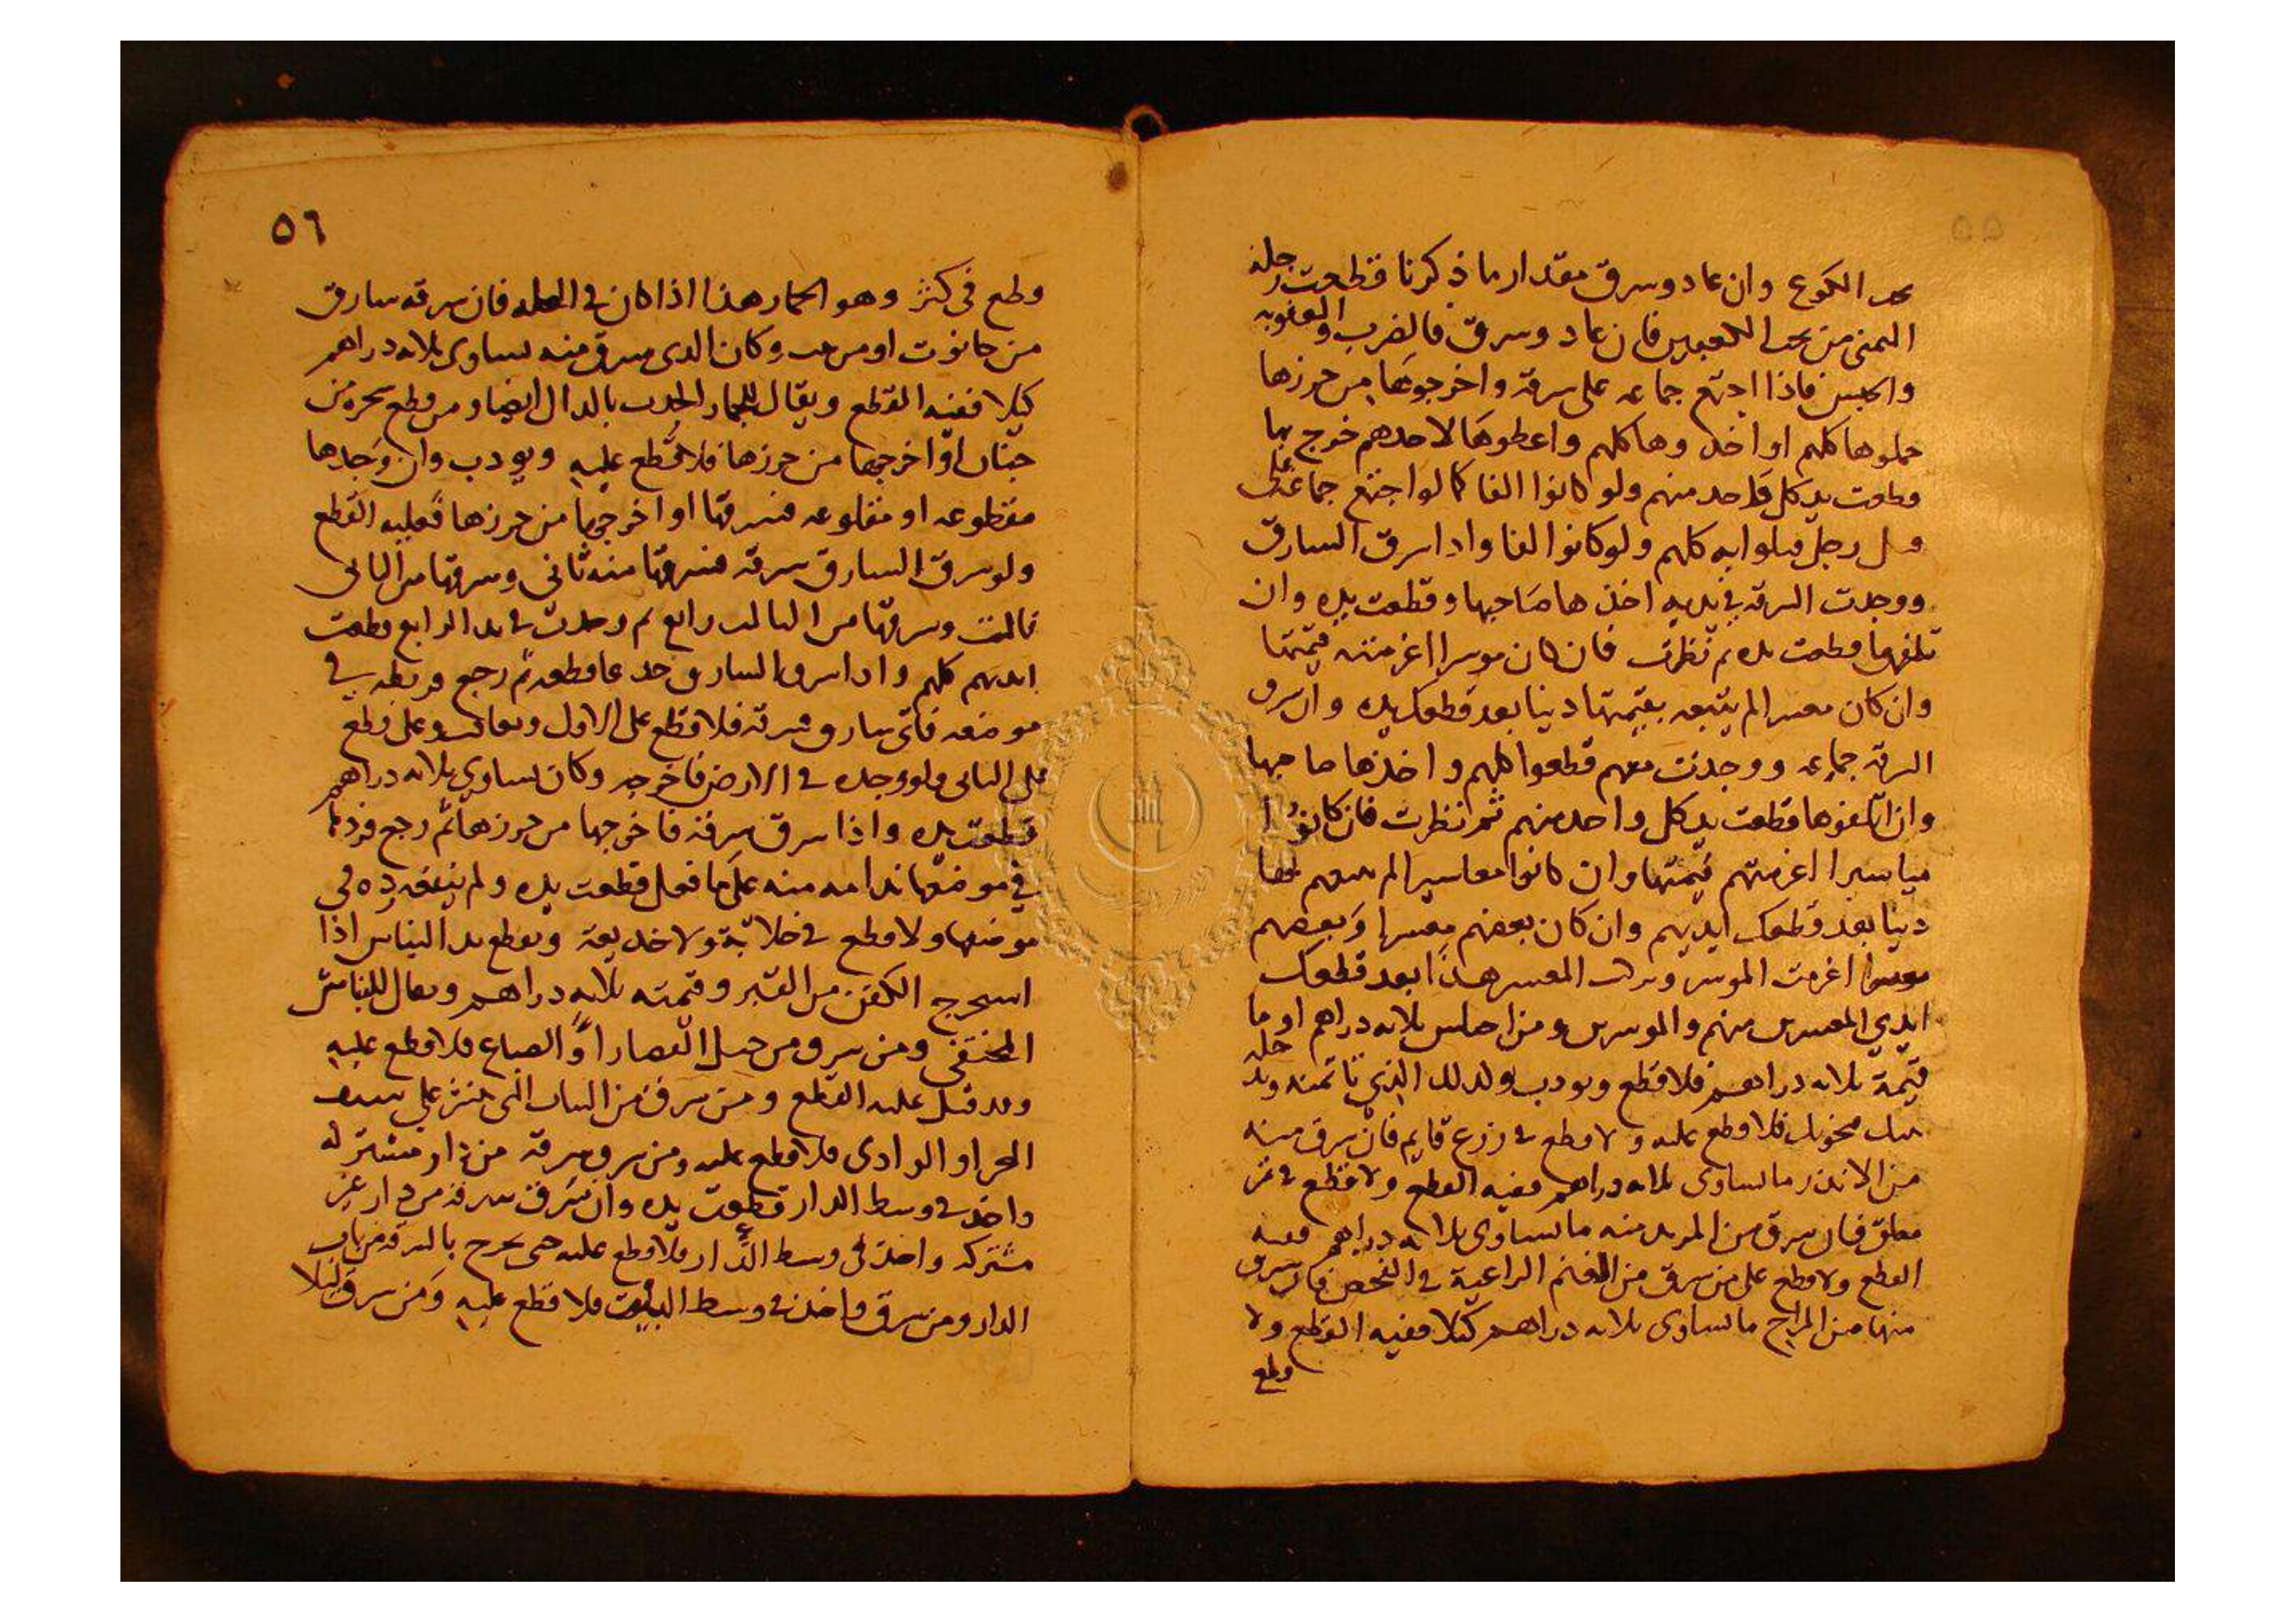 ٥٥
الكوع وان عاد وسرق مقدار ما ذكرنا قطعت رجله
اليمنى من تحت الكعبين فان عاد وسرق فالضرب والعقوبه
والحبس فاذا اجتمع جماعه على سرقة واخرجوها من حرزها
حملوها كلهم او اخذوها كلهم واعطوها لاحدهم خرج بها
قطعت يد كل واحد منهم ولو كانوا الفا كما لو اجتمع جماعة على
قتل رجل قتلوا به كلهم ولو كانوا الفا واذا سرق السارق
ووجدت السرقة في يديه اخذها صاحبها وقطعت يده وان
تلفها قطعت يده ثم نظرت فان كان موسرا اغرمته قيمتها
وان كان معسرا لم يتبعه بقيمتها دينا بعد قطعك يده وان سرق
السرقة جماعه ووجدت معهم قطعوا كلهم واخذها صاحبها
وان اتلفوها قطعت يد كل واحد منهم ثم نظرت فان كانوا
مياسيرا اغرمتهم قيمتها وان كانوا معاسيرا لم
دينا بعد قطعك ايديهم وان كان بعضهم معسرا وبعضهم
موسرا اغرمت الموسر المعسر هذا بعد قطعك
ايدي المعسرين منهم والموسرين ومن اختلس ثلاثه دراهم او ما
قيمة ثلاثه دراهم فلا قطع ويودب وكذلك الذي
فلا قطع عليه ولا قطع في زرع قايم فان سرق منه
من الاندر ما يساوي ثلاثه دراهم ففيه القطع ولا قطع في ثمر
معلق فان سرق من المربد منه ما يساوي ثلاثه دراهم ففيه
القطع ولا قطع على من سرق من الغنم الراعية في الفحص فان سرق
منها من المراح ما يساوي ثلاثه دراهم كيلا ففيه القطع ولا
قطع
٥٦
قطع في كثر وهو الجمار هذا اذا كان في فان سرقه سارق
من حانوت او من وكان الذي سرق منه يساوي ثلاثه دراهم
كيلا ففيه القطع ويقال للجمار الجدب بالدال ايضا ومن قطع شجره من
جنان او اخرجها من حرزها فلا قطع عليه ويودب وان وجدها
مقطوعه او مقلوعه فسرقها او اخرجها من حرزها فعليه القطع
ولو سرق السارق سرقة فسرقها منه ثاني وسرقها من الثاني
ثالث وسرقها من الثالث رابع ثم وجدت في يد الرابع قطعت
ايديهم كلهم واذا سرق السارق جدعا فقطعه ثم رجع فربطه في
موضعه فاتى سارق فسرقه فلا قطع على الاول ويعاقب وعلى قطع
على الثاني ولو وجده في الارض فاخرجه وكان يساوي ثلاثه دراهم
قطعت يده واذا سرق سرقة فاخرجها من حرزها ثم رجع فردها
في موضعها ندامه منه على ما فعل قطعت يده ولم ينفعه رده في
موضعها ولا قطع في خلابة ولا خديعة ويقطع يد النباش اذا
استخرج الكفن من القبر وقيمته ثلاثه دراهم ويقال للنباش
المختفي ومن سرق من حبل القصار او الصباغ فلا قطع عليه
وقد قيل عليه القطع ومن سرق من الثياب التي تنشر على
البحر او الوادي فلا قطع عليه ومن سرق سرقة من دار مشتركه
واخذ في وسط الدار قطعت يده وان سرق سرقة من دار غير
مشتركه واخذ في وسط الدار فلا قطع عليه حتى يخرج بالسرقة من باب
الدار ومن سرق واخذ في وسط البيت فلا قطع عليه ومن سرق ليلا